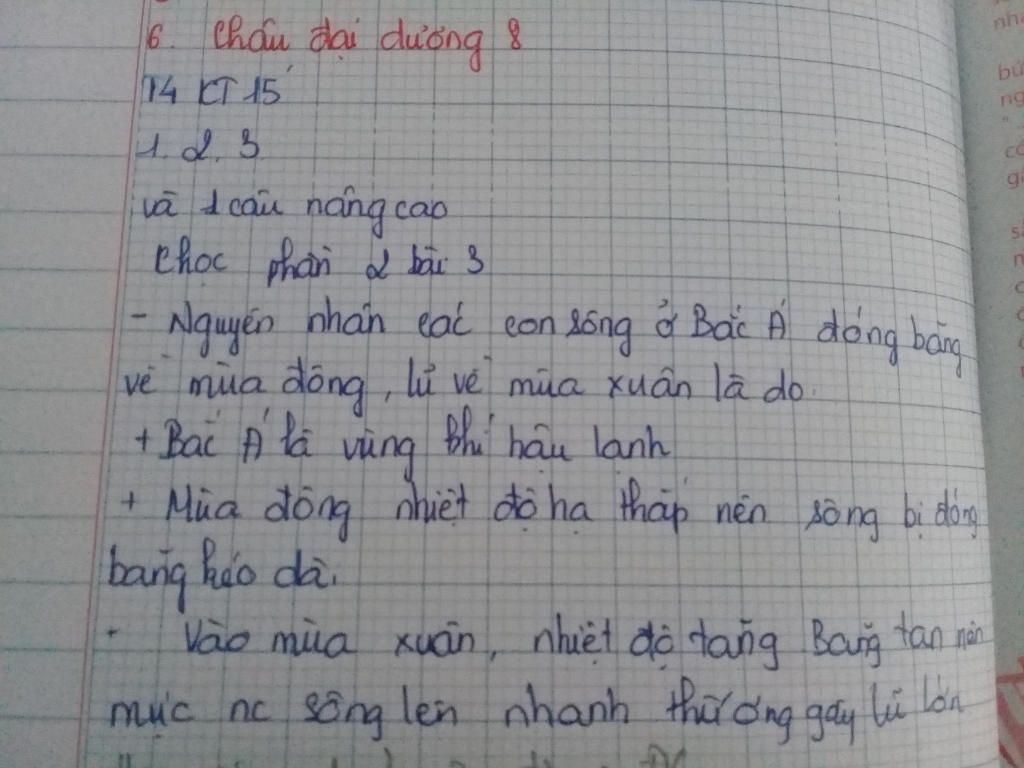 6. Châu đại dương 8
T4 KT 15'
1. 2. 3
và 1 câu nâng cao
học phần 2 bài 3
- Nguyên nhân các con sông ở Bắc Á đóng băng
về mùa đông, lũ về mùa xuân là do.
+ Bắc Á là vùng khí hậu lạnh
+ Mùa đông nhiệt độ hạ thấp nên sông bị đóng
băng kéo dà.
+ Vào mùa xuân, nhiệt độ tăng Băng tan nên
mực nc sông lên nhanh thường gây lũ lớn